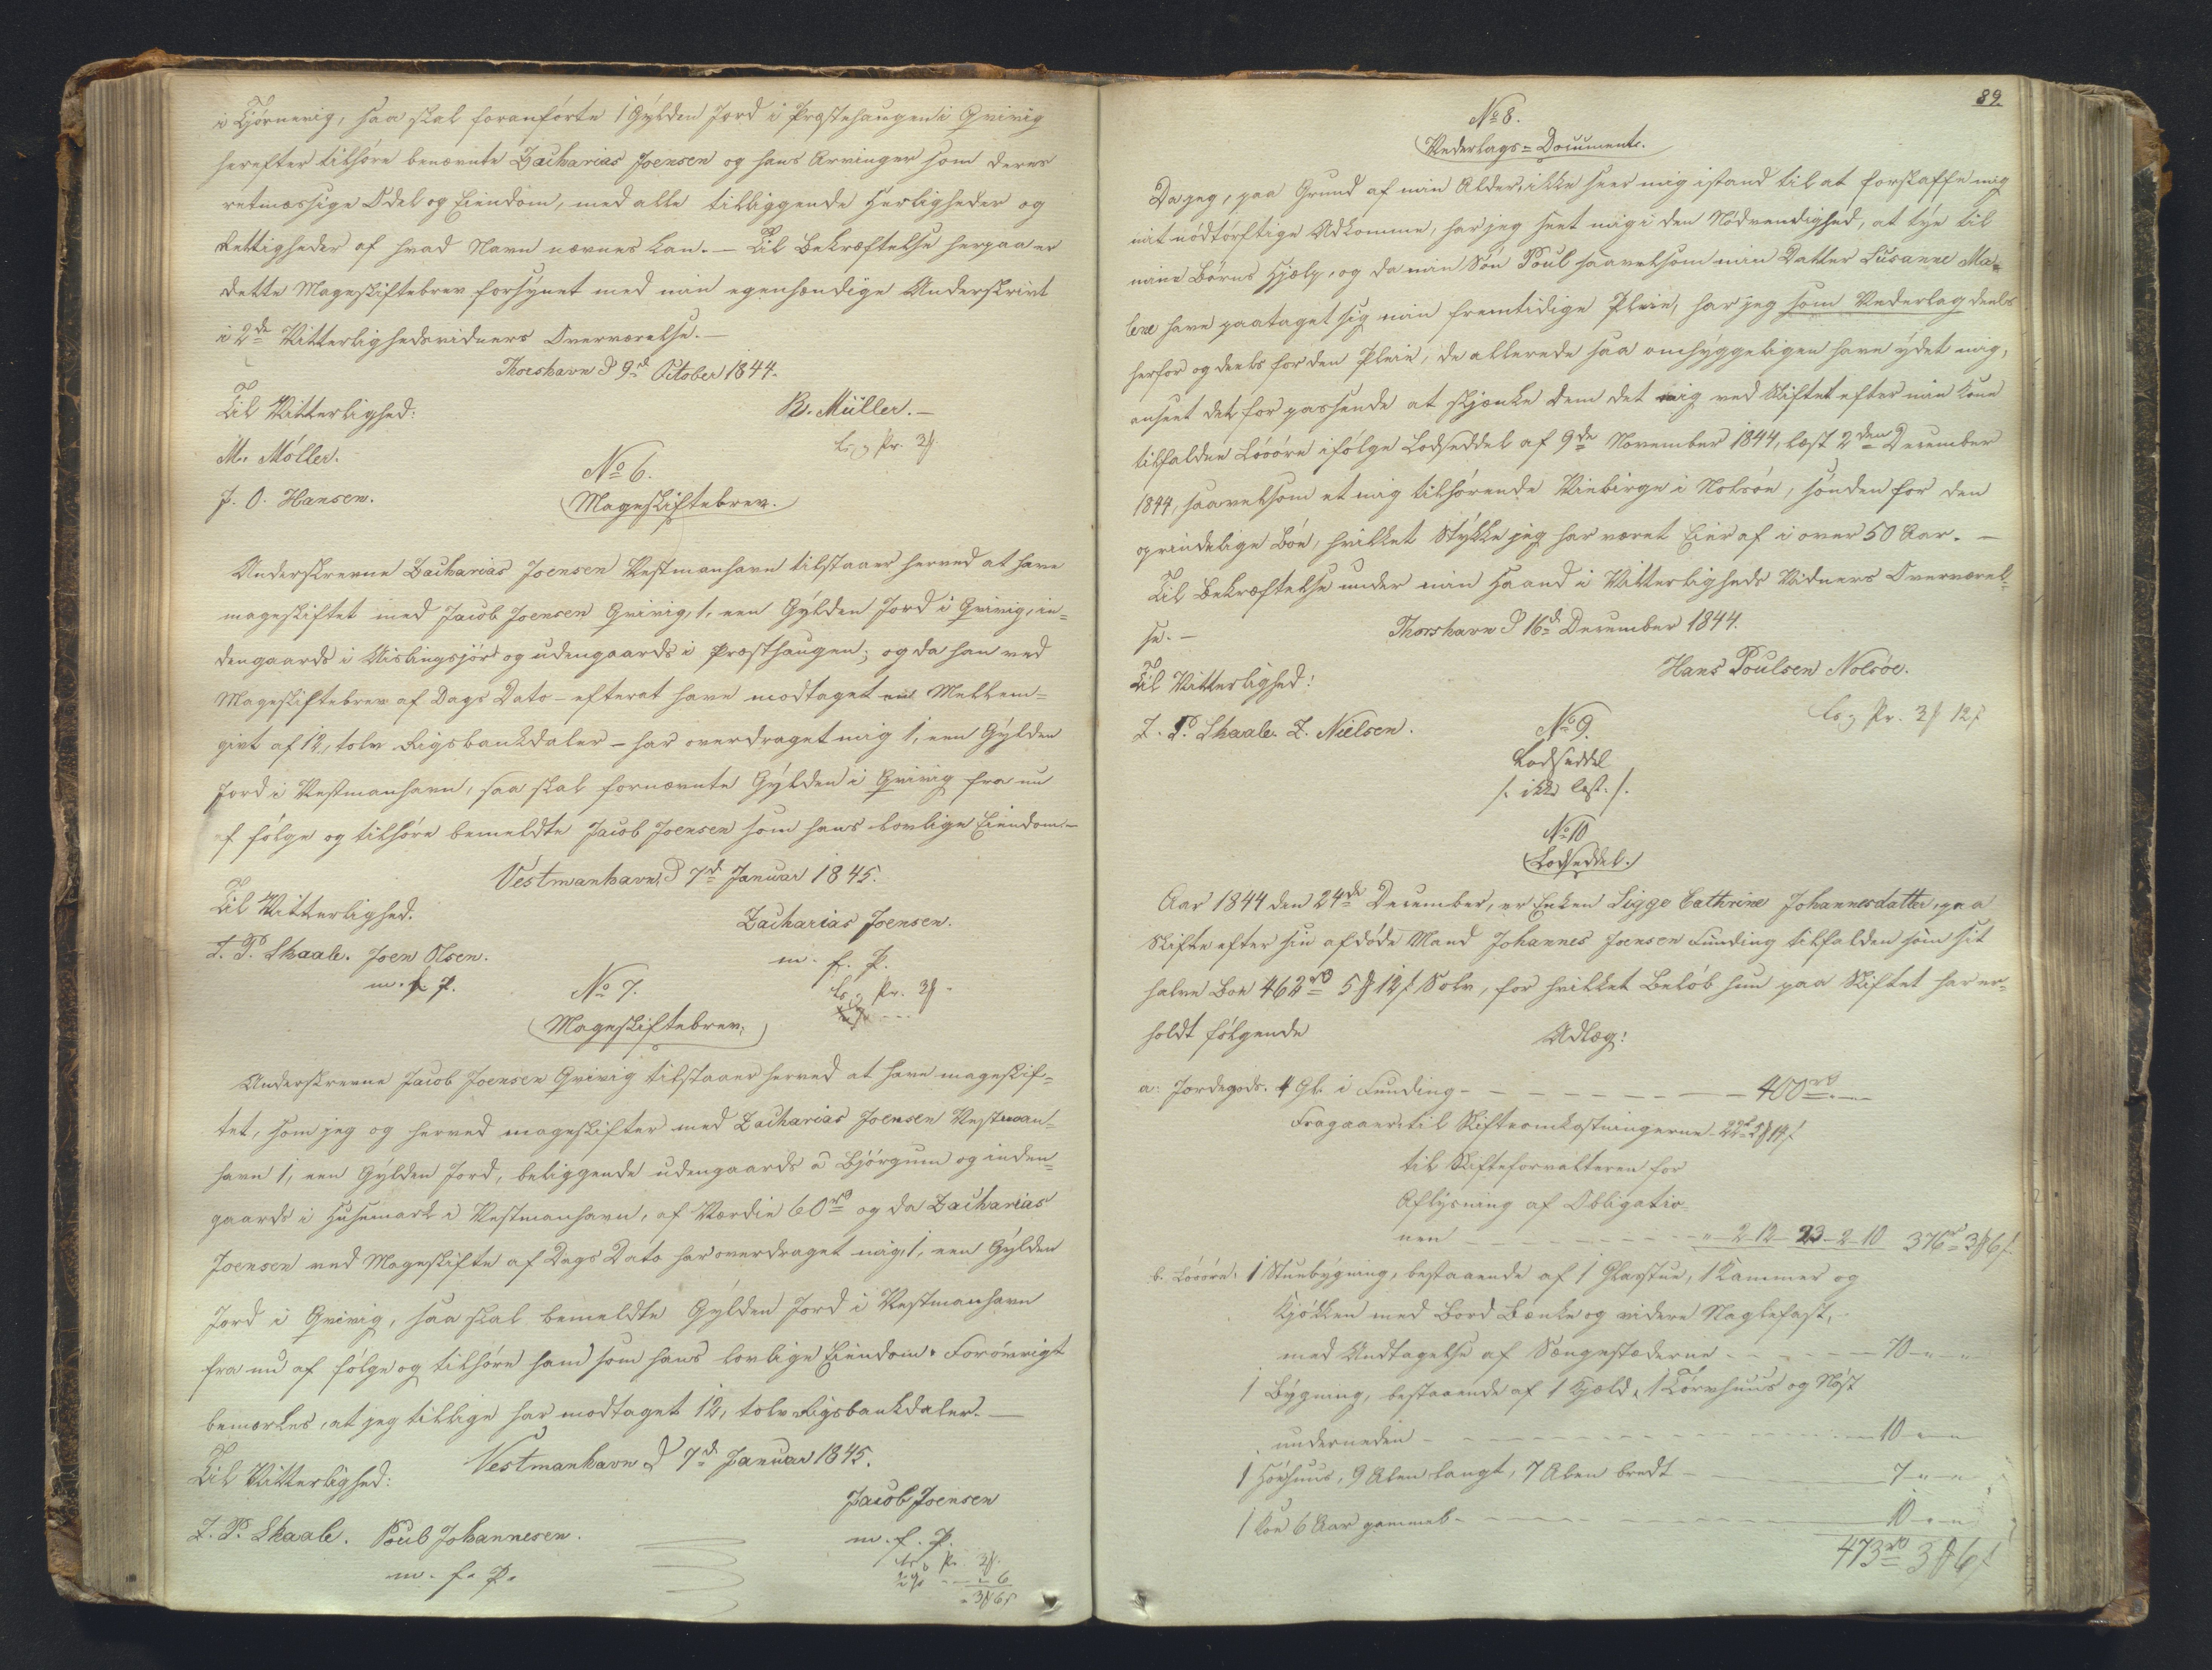 i Tjörnevig, saa skal foranförte 1 Gylden Jord i Præstehaugen i Qvivig
herefter tilhöre benævnte Zacharias Joensen og hans Arvinger som deres
retmæssige Odel og Eiendom, med alle tilliggende Herligheder og
Rettigheder af hvad Navn nævnes kan. — Til Bekræftelse herpaa er
dette Mageskiftebrev forsynet med min egenhændige Underskrivt
i 2de Vitterlighedsvidners Overværelse. —
Thorshavn d 9d October 1844.
Til Vitterlighed:
R. Müller. —
M. Möller.
J. O. Hansen.
No 6.
Mageskiftebrev.
Underskrevne Zacharias Joensen Vestmanhavn tilstaaer herved at have
mageskiftet med Jacob Joensen Qvivig, 1, een Gylden Jord i Qvivig, in=
dengaards i Uislingsjörd og udengaards i Præsthaugen; og da han ved
Mageskiftebrev af Dags Dato – efterat have modtaget en Mellem=
givt af 12, tolv Rigsbankdaler – har overdraget mig 1, een Gylden
Jord i Vestmanhavn, saa skal fornævnte Gylden i Qvivig fra nu
af fölge og tilhöre bemeldte Jacob Joensen som hans lovlige Eiendom. —
Vestmanhavn, d 7d Januar 1845.
Til Vitterlighed.
Zacharias Joensen.
m. f. P.
J. P. Skaale. Joen Olsen.
m. f. P.
No 7.
Mageskiftebrev.
Underskrevne Jacob Joensen Qvivig tilstaaer herved at have mageskif=
tet, som jeg og herved mageskifter med Zacharias Joensen Vestman=
havn 1, een Gylden Jord, beliggende udengaards á Bjórgum og inden=
gaards i Husemark i Vestmanhavn, af Værdie 60 rd og da Zacharias
Joensen ved Mageskifte af Dags Dato har overdraget mig 1, een Gylden
Jord i Qvivig, saa skal bemeldte Gylden Jord i Vestmanhavn
fra nu af fölge og tilhöre ham som hans lovlige Eiendom. Forövrigt
bemærkes, at jeg tillige har modtaget 12, tolv Rigsbankdaler. —
Vestmanhavn d 7d Januar 1845.
Til Vitterlighed:
Jacob Joensen
m. f. P.
J. P. Skaale. Poul Johannesen.
m. f. P.
89.
No 8.
Vederlags=Document.
Da jeg, paa Grund af min Alder, ikke seer mig istand til at forskaffe mig
mit nödtörftige Udkomme, har jeg seet mig i den Nödvendighed, at tye til
mine Börns Hjælp, og da min Sön Poul saavelsom min Datter Susanne Ma=
lene have paataget sig min fremtidige Pleie, har jeg som Vederlag deels
herfor og deels for den Pleie, de allerede saa omhyggeligen have ydet mig,
anseet det for passende at skjænke dem det mig ved Skiftet efter min Kone
tilfaldne Lösöre ifölge Lodseddel af 9de November 1844, læst 2den December
1844, saavelsom et mig tilhörende Viebirge i Nolsöe, sönden for den
oprindelige Böe, hvilket Stykke jeg har været Eier af i over 50 Aar. —
Til Bekræftelse under min Haand i Vitterligheds Vidners Overværel=
se. —
Thorshavn d 16d December 1844.
Til Vitterlighed:
Hans Poulsen Nolsöe.
J. P. Skaale. Z. Nielsen.
No 9.
Lodseddel
/: ikke læst :/.
No 10
Lodseddel.
Aar 1844 den 24de December, er Enken Sigge Cathrine Johannesdatter, paa
Skifte efter sin afdöde Mand Johannes Joensen Funding tilfalden som sit
halve Boe 462 rd 5 ℔ 12 ſ Sölv, for hvilket Belöb hun paa Skiftet har er=
holdt fölgende
Udlæg:
a: Jordegods. 4 Gl. i Funding — 400 rd —
Fragaaer til Skifteomkostningerne 22
til Skifteforvalteren for
Aflysning af Obligatio=
nen — " – 2 12 – 23 – 2 – 10 376 rd 3 ℔ 6 ſ.
b. Lösöre: 1 Stuebygning, bestaaende af 1 Glasstue, 1 Kammer og
Kjökken med Bord Bænke og videre Naglefast,
med Undtagelse af Sengestæderne — 70 – " – "
1 Bygning, bestaaende af 1 Hjæld, 1 Törvehuus og Nöst
underneden — 10 – " – "
1 Höehuus, 9 Alen langt, 7 Alen bredt — 7 – " – "
1 Koe 6 Aar gammel — 10 – " – "
473 rd 3 ℔ 6 ſ